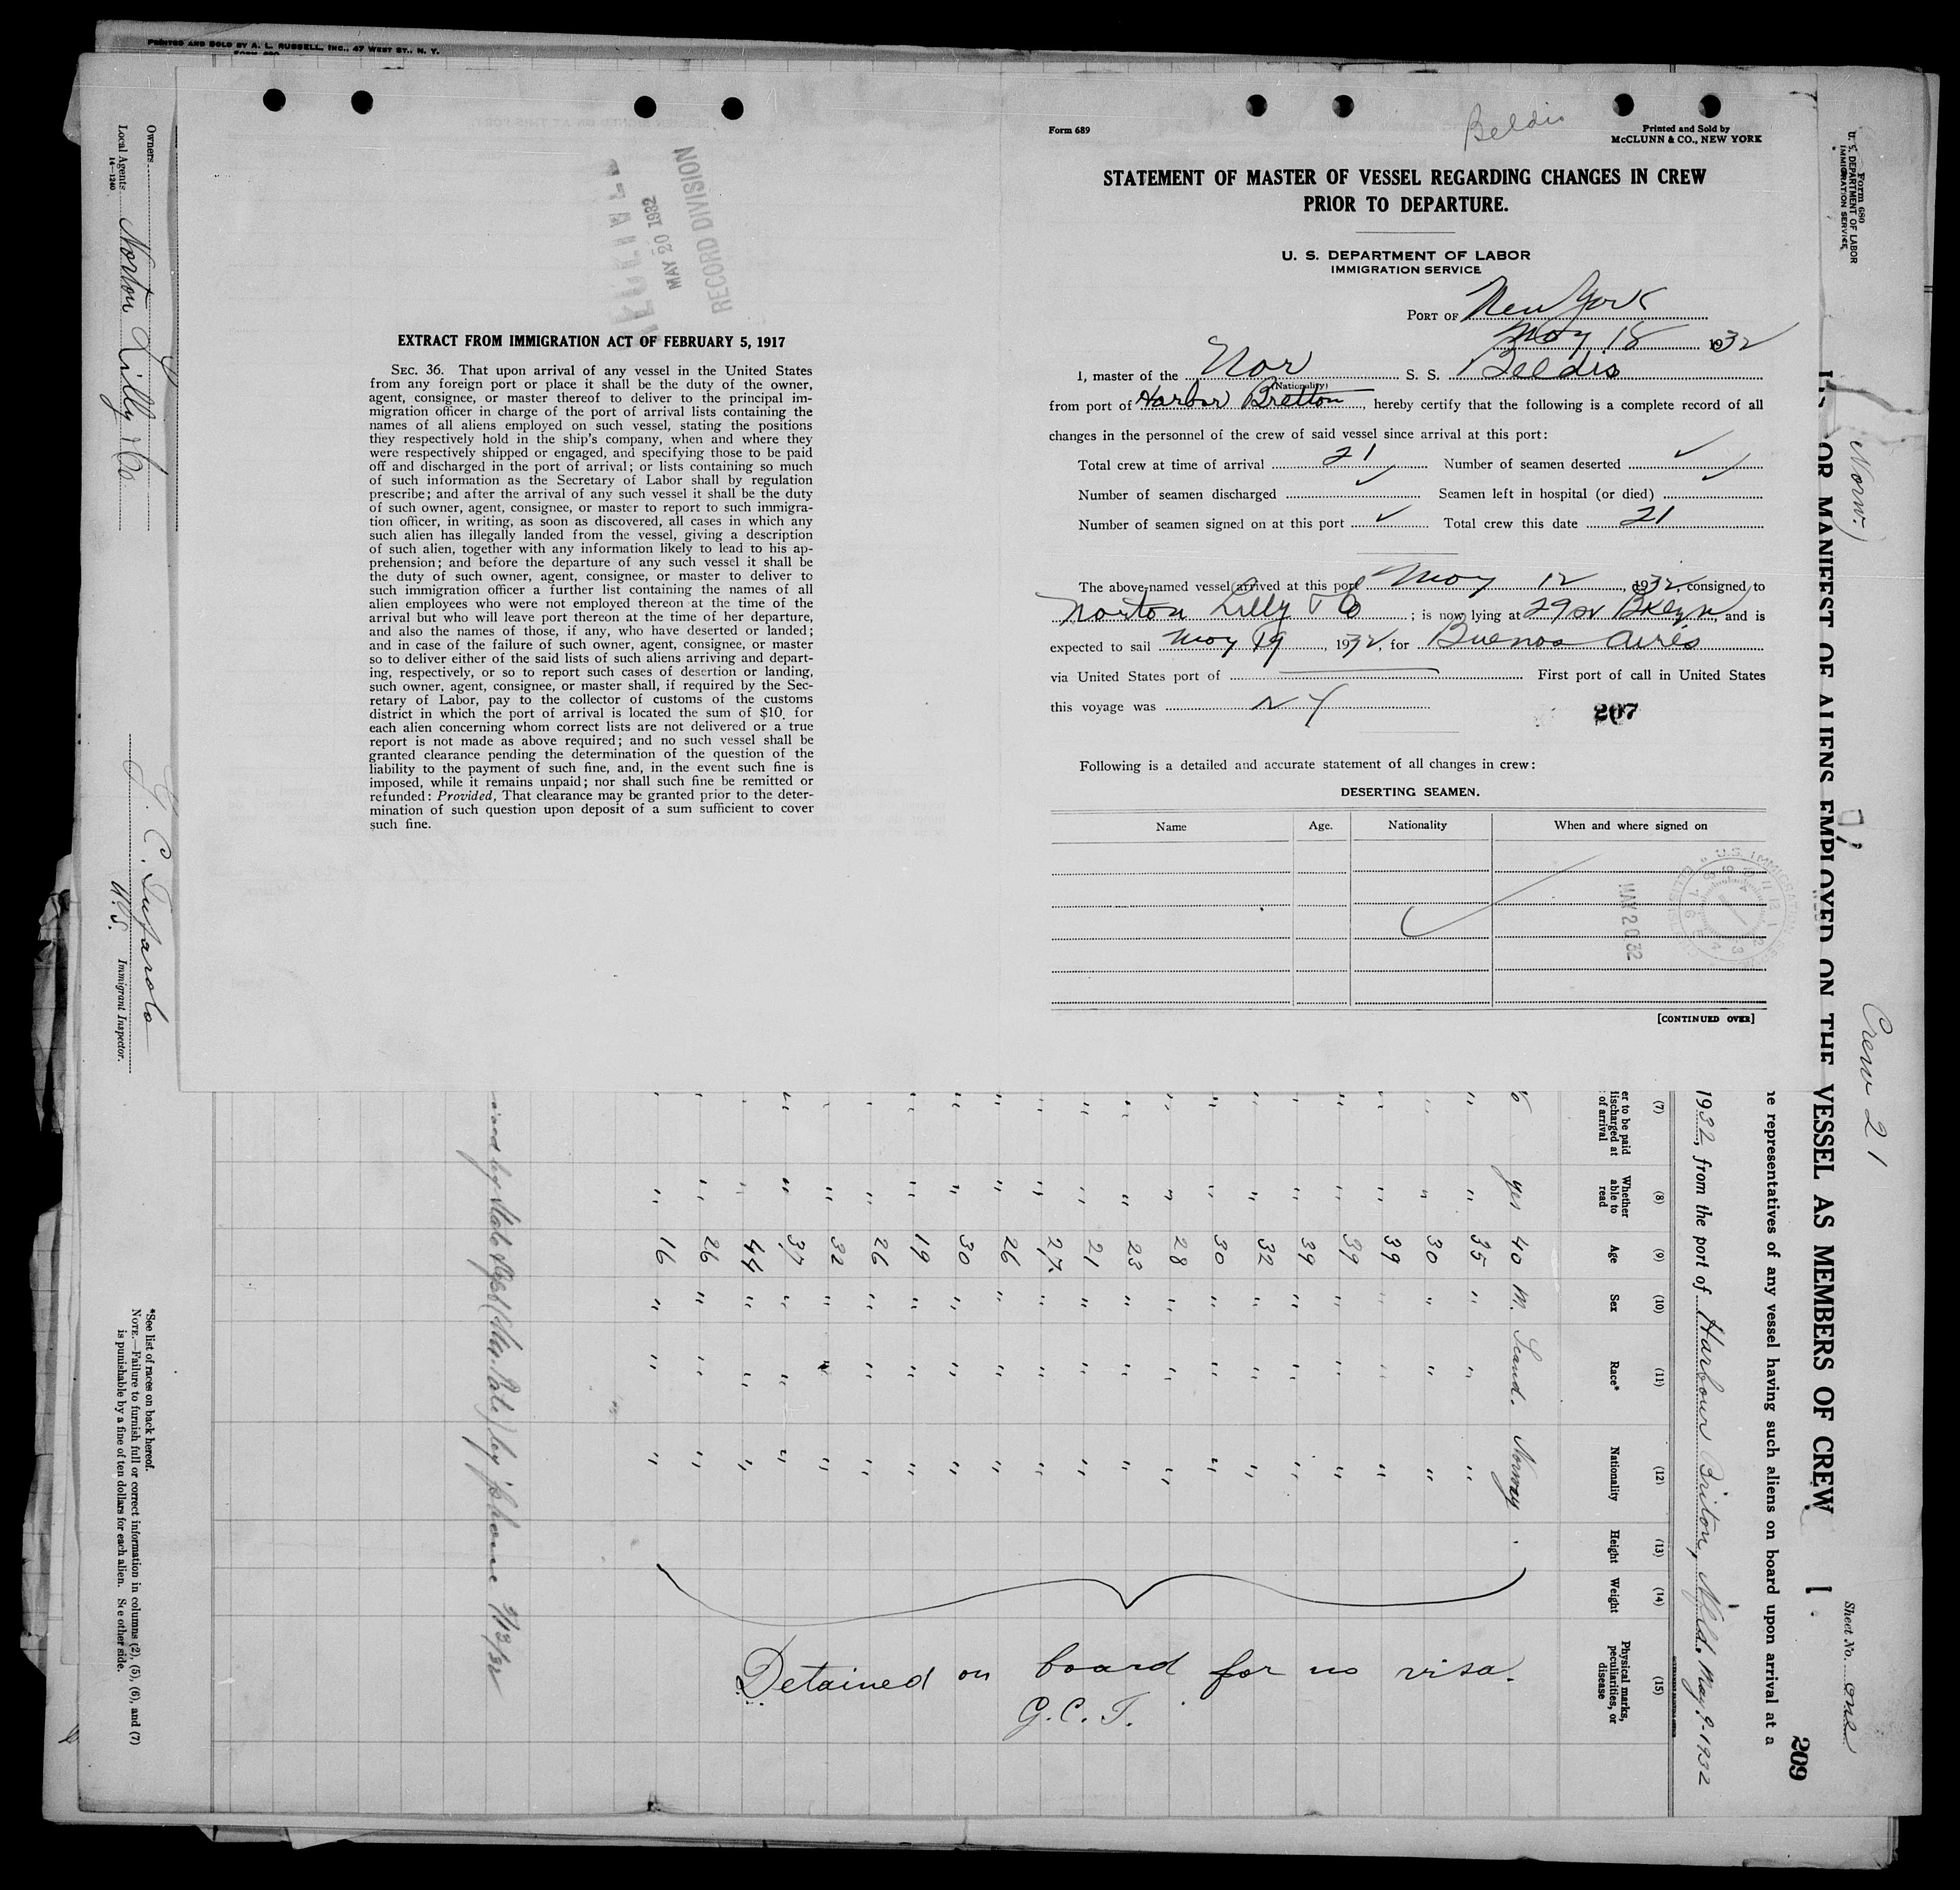 PRINTED AND SOLD BY A. L. RUSSELL, INC., 47 WEST ST., N. Y.
Form 689
Beldis
Printed and Sold by
McCLUNN & CO., NEW YORK
STATEMENT OF MASTER OF VESSEL REGARDING CHANGES IN CREW
PRIOR TO DEPARTURE.
U. S. DEPARTMENT OF LABOR
IMMIGRATION SERVICE
PORT OF New York
May 18 1932
I, master of the Nor S. S. Beldis
(Nationality)
from port of Harbor Bretton, hereby certify that the following is a complete record of all
changes in the personnel of the crew of said vessel since arrival at this port:
Total crew at time of arrival 21 Number of seamen deserted ✓
Number of seamen discharged ✓ Seamen left in hospital (or died) ✓
Number of seamen signed on at this port ✓ Total crew this date 21
The above-named vessel arrived at this port May 12, 1932, consigned to
Norton Lilly & Co; is now lying at 29 St Bklyn, and is
expected to sail May 19, 1932, for Buenos Aires
via United States port of First port of call in United States
this voyage was N Y
207
Following is a detailed and accurate statement of all changes in crew:
DESERTING SEAMEN.
Name Age. Nationality When and where signed on
MAY 20 32
[CONTINUED OVER]
MAY 20 1932
RECORD DIVISION
EXTRACT FROM IMMIGRATION ACT OF FEBRUARY 5, 1917
SEC. 36. That upon arrival of any vessel in the United States
from any foreign port or place it shall be the duty of the owner,
agent, consignee, or master thereof to deliver to the principal im-
migration officer in charge of the port of arrival lists containing the
names of all aliens employed on such vessel, stating the positions
they respectively hold in the ship's company, when and where they
were respectively shipped or engaged, and specifying those to be paid
off and discharged in the port of arrival; or lists containing so much
of such information as the Secretary of Labor shall by regulation
prescribe; and after the arrival of any such vessel it shall be the duty
of such owner, agent, consignee, or master to report to such immigra-
tion officer, in writing, as soon as discovered, all cases in which any
such alien has illegally landed from the vessel, giving a description
of such alien, together with any information likely to lead to his ap-
prehension; and before the departure of any such vessel it shall be
the duty of such owner, agent, consignee, or master to deliver to
such immigration officer a further list containing the names of all
alien employees who were not employed thereon at the time of the
arrival but who will leave port thereon at the time of her departure,
and also the names of those, if any, who have deserted or landed;
and in case of the failure of such owner, agent, consignee, or master
so to deliver either of the said lists of such aliens arriving and depart-
ing, respectively, or so to report such cases of desertion or landing,
such owner, agent, consignee, or master shall, if required by the Sec-
retary of Labor, pay to the collector of customs of the customs
district in which the port of arrival is located the sum of $10 for
each alien concerning whom correct lists are not delivered or a true
report is not made as above required; and no such vessel shall be
granted clearance pending the determination of the question of the
liability to the payment of such fine, and, in the event such fine is
imposed, while it remains unpaid; nor shall such fine be remitted or
refunded: Provided, That clearance may be granted prior to the deter-
mination of such question upon deposit of a sum sufficient to cover
such fine.
Form 680
U. S. DEPARTMENT OF LABOR
IMMIGRATION SERVICE
(Norw.)
Crew 21
Sheet No. one
209
OR MANIFEST OF ALIENS EMPLOYED ON THE VESSEL AS MEMBERS OF CREW
representatives of any vessel having such aliens on board upon arrival at a
1932, from the port of Harbour Briton, Nfld. May 9-1932
(7) (8) (9) (10) (11) (12) (13) (14) (15)
er to be paid
discharged at
of arrival
Whether
able to
read
Age
Sex
Race*
Nationality
Height
Weight
Physical marks,
peculiarities, or
disease
yes 40 M. Scand. Norway
" 35 " " "
" 30 " " "
" 39 " " "
" 39 " " "
" 39 " " "
" 32 " " "
" 30 " " "
" 28 " " "
" 23 " " "
" 21 " " "
" 27 " " "
" 26 " " "
" 30 " " "
" 19 " " "
" 26 " " "
" 32 " " "
" 37 " " "
" 44 " " "
" 26 " " "
" 16 " " "
Detained on board for no visa.
G.C.T.
Owners
Local Agents Norton Lilly & Co
14—1240
Immigrant Inspector.
*See list of races on back hereof.
NOTE.—Failure to furnish full or correct information in columns (2), (5), (6), and (7)
is punishable by a fine of ten dollars for each alien. See other side.